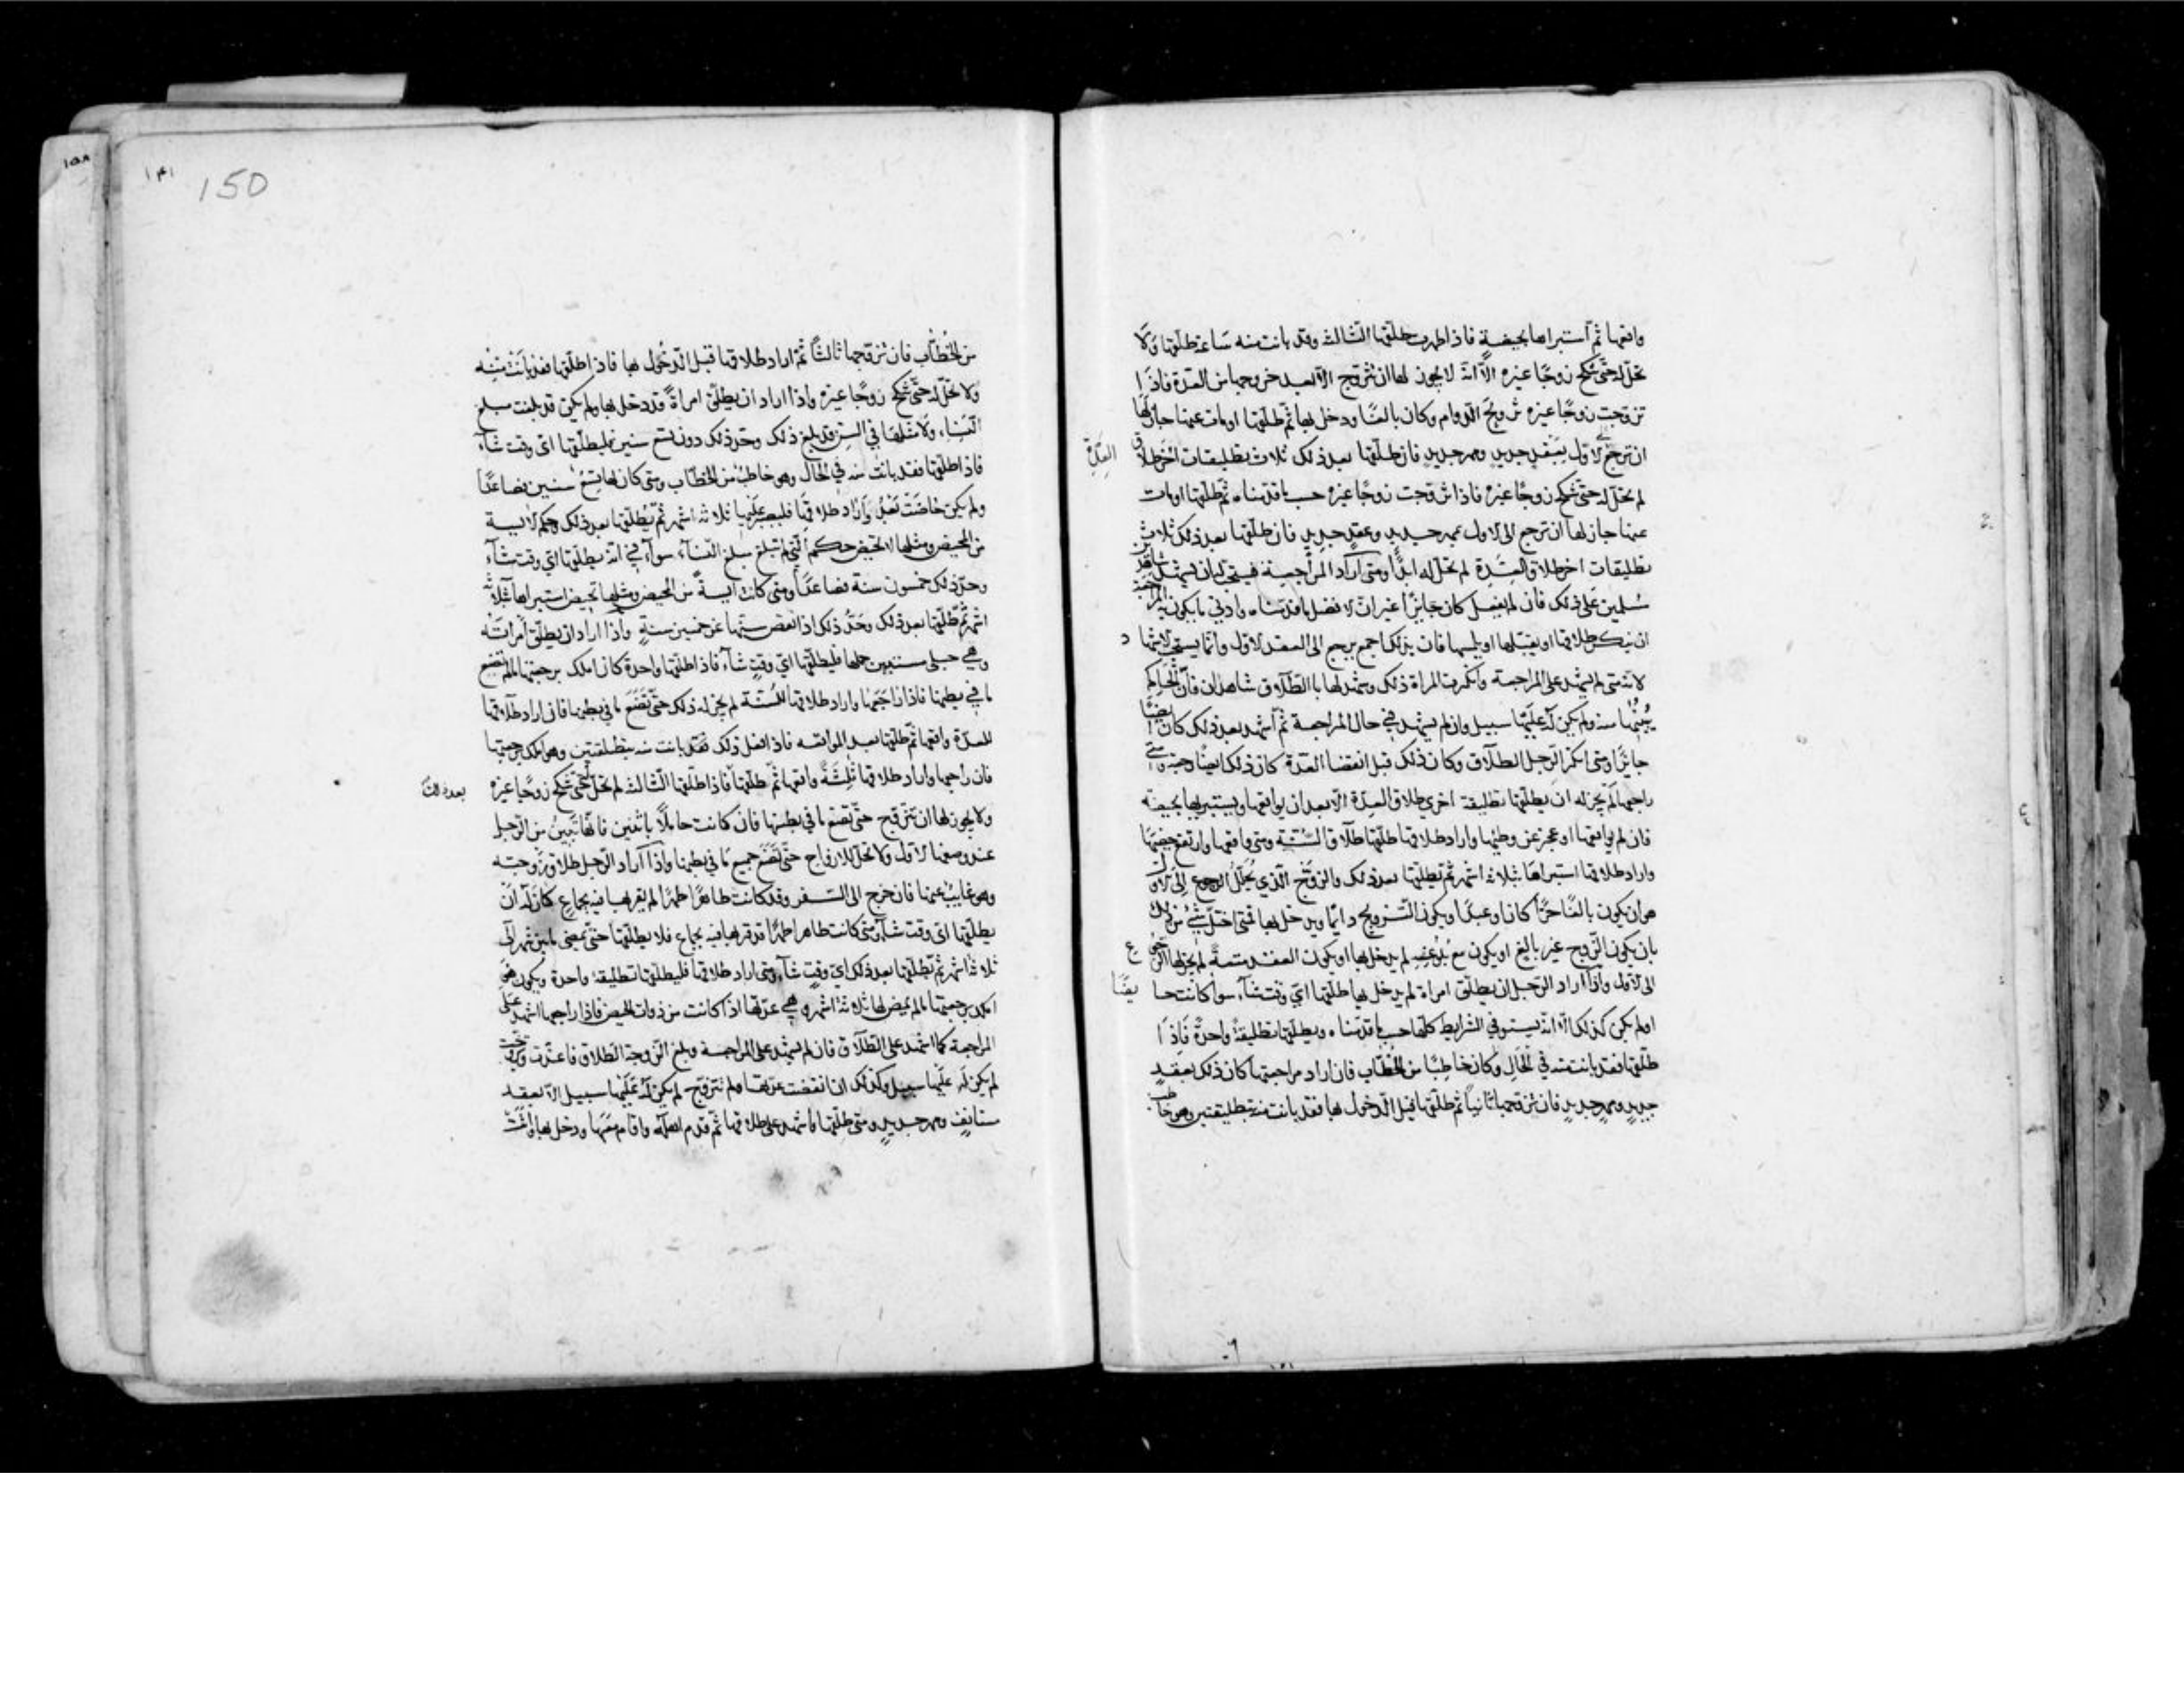 واقعها ثم استبراها بحيضة فاذا طهرت طلقها الثالثة وقد بانت منه ساعة طلقها ولا
تحل له حتى تنكح زوجًا غيره الا انه لا يجوز لها ان تتزوج الا بعد خروجها من العدة فاذا
تزوجت زوجًا غيره تزويج الدوام وكان بالغًا ودخل بها ثم طلقها او مات عنها جاز لها
ان ترجع الى الاول بعقد جديد ومهر جديد فان طلقها بعد ذلك ثلاث تطليقات اخر طلاق العدة
لم تحل له حتى تنكح زوجًا غيره فاذا تزوجت زوجًا غيره حسب ما قدمناه ثم طلقها او مات
عنها جاز لها ان ترجع الى الاول بمهر جديد وعقد جديد فان طلقها بعد ذلك ثلاث
تطليقات اخر طلاق العدة لم تحل له ابدًا ومتى اراد المراجعة فيستحب له ان يشهد شاهدين
مسلمين على ذلك فان لم يفعل كان جايزًا غير ان الافضل ما قدمناه وادنى ما يكون به المراجعة
ان ينكر طلاقها او يقبلها او يلمسها فان بذلك اجمع يرجع الى العقد الاول وانما يستحب الاشهاد
لانه متى لم يشهد على المراجعة وانكرت المراة ذلك وشهد لها بالطلاق شاهدان فان الحاكم
يبينها منه ولم يكن له عليها سبيل وان لم يشهد في حال المراجعة ثم اشهد بعد ذلك كان ايضًا
جايزًا ومتى انكر الرجل الطلاق وكان ذلك قبل انقضا العدة كان ذلك ايضًا رجعة ومتى
راجعها لم يجز له ان يطلقها تطليقة اخرى طلاق العدة الا بعد ان يواقعها ويستبريها بحيضة
فان لم يواقعها او عجز عن وطيها واراد طلاقها طلقها طلاق السنة ومتى واقعها وارتفع حيضها
واراد طلاقها استبراها بثلاثة اشهر ثم يطلقها بعد ذلك والزوج الذي يحلل الرجوع الى الاول
هو ان يكون بالغًا حرًا كان او عبدًا ويكون التزويج دايمًا ويدخل بها فمتى اختل شي من ذلك
بان يكون الزوج غير بالغ او يكون مع بلوغه لم يدخل بها او يكون العقد متعة لم يجز لها الرجوع
الى الاول واذا اراد الرجل ان يطلق امراة لم يدخل بها طلقها اي وقت شاء سوا كانت حايضًا
او لم يكن كذلك الا انه يستوفي الشرايط كلها حسب ما قدمناه ويطلقها تطليقة واحدة فاذا
طلقها فقد بانت منه في الحال وكان خاطبًا من الخطاب فان اراد مراجعتها كان ذلك بعقد
جديد ومهر جديد فان تزوجها ثانيًا ثم طلقها قبل الدخول بها فقد بانت منه بتطليقتين وهو خاطب
١٥٨
١٤١
150
من الخطاب فان تزوجها ثالثًا ثم اراد طلاقها قبل الدخول بها فاذا طلقها فقد بانت منه
ولا تحل له حتى تنكح زوجًا غيره واذا اراد ان يطلق امراة قد دخل بها ولم يكن قد بلغت مبلغ
النساء ولا مثلها في السن قد بلغ ذلك وحد ذلك دون تسع سنين فليطلقها اي وقت شاء
فاذا طلقها فقد بانت منه في الحال وهو خاطب من الخطاب ومتى كان لها تسع سنين فصاعدًا
ولم يكن حاضت بعد واراد طلاقها فليصبر عليها ثلاثة اشهر ثم يطلقها بعد ذلك وحكم الايسة
من المحيض ومثلها لا تحيض حكم التي لم تبلغ مبلغ النساء سواء في انه يطلقها اي وقت شاء
وحد ذلك خمسون سنة فصاعدًا ومتى كانت ايسة من المحيض ومثلها تحيض استبراها بثلاثة
اشهر ثم طلقها بعد ذلك وحد ذلك اذا نقص سنها عن خمسين سنة واذا اراد ان يطلق امراته
وهي حبلى مستبين حملها فليطلقها اي وقت شاء فاذا طلقها واحدة كان املك برجعتها ما لم تضع
ما في بطنها فاذا راجعها واراد طلاقها للسنة لم يجز له ذلك حتى تضع ما في بطنها فان اراد طلاقها
للعدة واقعها ثم طلقها بعد المواقعة فاذا فعل ذلك فقد بانت منه بتطليقتين وهو املك برجعتها
فان راجعها واراد طلاقها ثالثة واقعها ثم طلقها فاذا طلقها الثالثة لم تحل له حتى تنكح زوجًا غيره
ولا يجوز لها ان تتزوج حتى تضع ما في بطنها فان كانت حاملًا باثنين فانها تبين من الرجل
عند وضعها الاول ولا تحل للازواج حتى تضع جميع ما في بطنها واذا اراد الرجل طلاق زوجته
وهو غايب عنها فان خرج الى السفر وقد كانت طاهرًا طهرًا لم يقربها فيه بجماع كان له ان
يطلقها اي وقت شاء ومتى كانت طاهرا طهرًا قد قربها فيه بجماع فلا يطلقها حتى يمضي ما بين شهر الى
ثلاثة اشهر ثم يطلقها بعد ذلك اي وقت شاء ومتى اراد طلاقها فليطلقها تطليقة واحدة ويكون هو
املك برجعتها ما لم يمض لها ثلاثة اشهر وهي عدتها اذا كانت من ذوات الحيض فاذا راجعها اشهد على
المراجعة كما اشهد على الطلاق فان لم يشهد على المراجعة وبلغ الزوجة الطلاق فاعتدت وتزوجت
لم يكن له عليها سبيل وكذلك ان انقضت عدتها ولم تتزوج لم يكن له عليها سبيل الا بعقد
مستانف ومهر جديد ومتى طلقها واشهد على طلاقها ثم قدم اهله واقام معها ودخل بها واتت